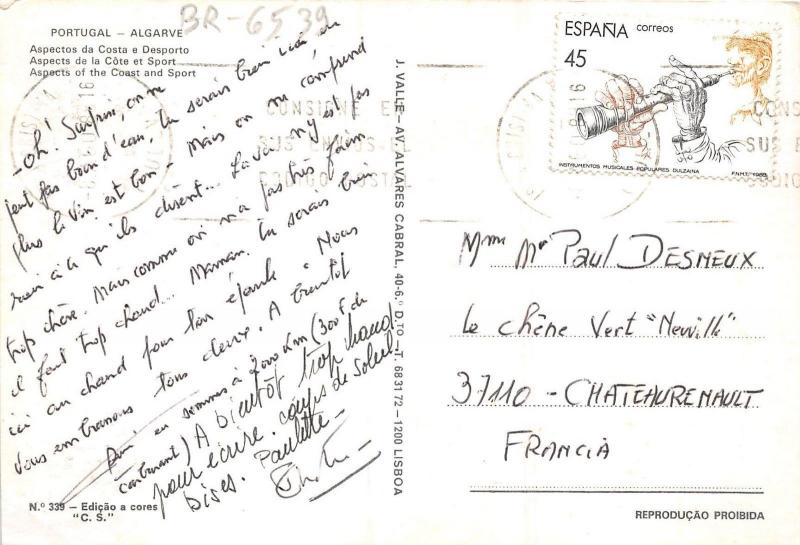 BR-6539
PORTUGAL - ALGARVE
Aspectos da Costa e Desporto
Aspects de la Côte et Sport
Aspects of the Coast and Sport
-Oh! Surprise, on ne
peut pas boire d'eau, tu serais bien ici, en
plus le vin est bon - Mais on ne comprend
rien à ce qu'ils disent... La vie n'y est pas
trop chère. Mais comme on n'a pas très faim,
il fait trop chaud... Maman, tu serais bien
ici au chaud pour ton épaule! Nous
vous embrassons tous deux. A bientôt
en sommes à 2000 km (300F de
carburant) A bientôt trop chaud
pour écrire. coups de soleil
bises. Paulette -
N.º 339 - Edição a cores
"C. S."
J. VALLE - AV. ALVARES CABRAL, 40-6.º D.TO - T. 683172 - 1200 LISBOA
ESPAÑA correos
45
INSTRUMENTOS MUSICALES POPULARES DULZAINA
F.N.M.T. - 1988
CONSIGNE EN
SUS ENVIOS EL
CODIGO POSTAL
Mme Mr Paul DESNEUX
Le chêne Vert "Neuville"
37110 - CHATEAURENAULT
FRANCIA
REPRODUÇÃO PROIBIDA